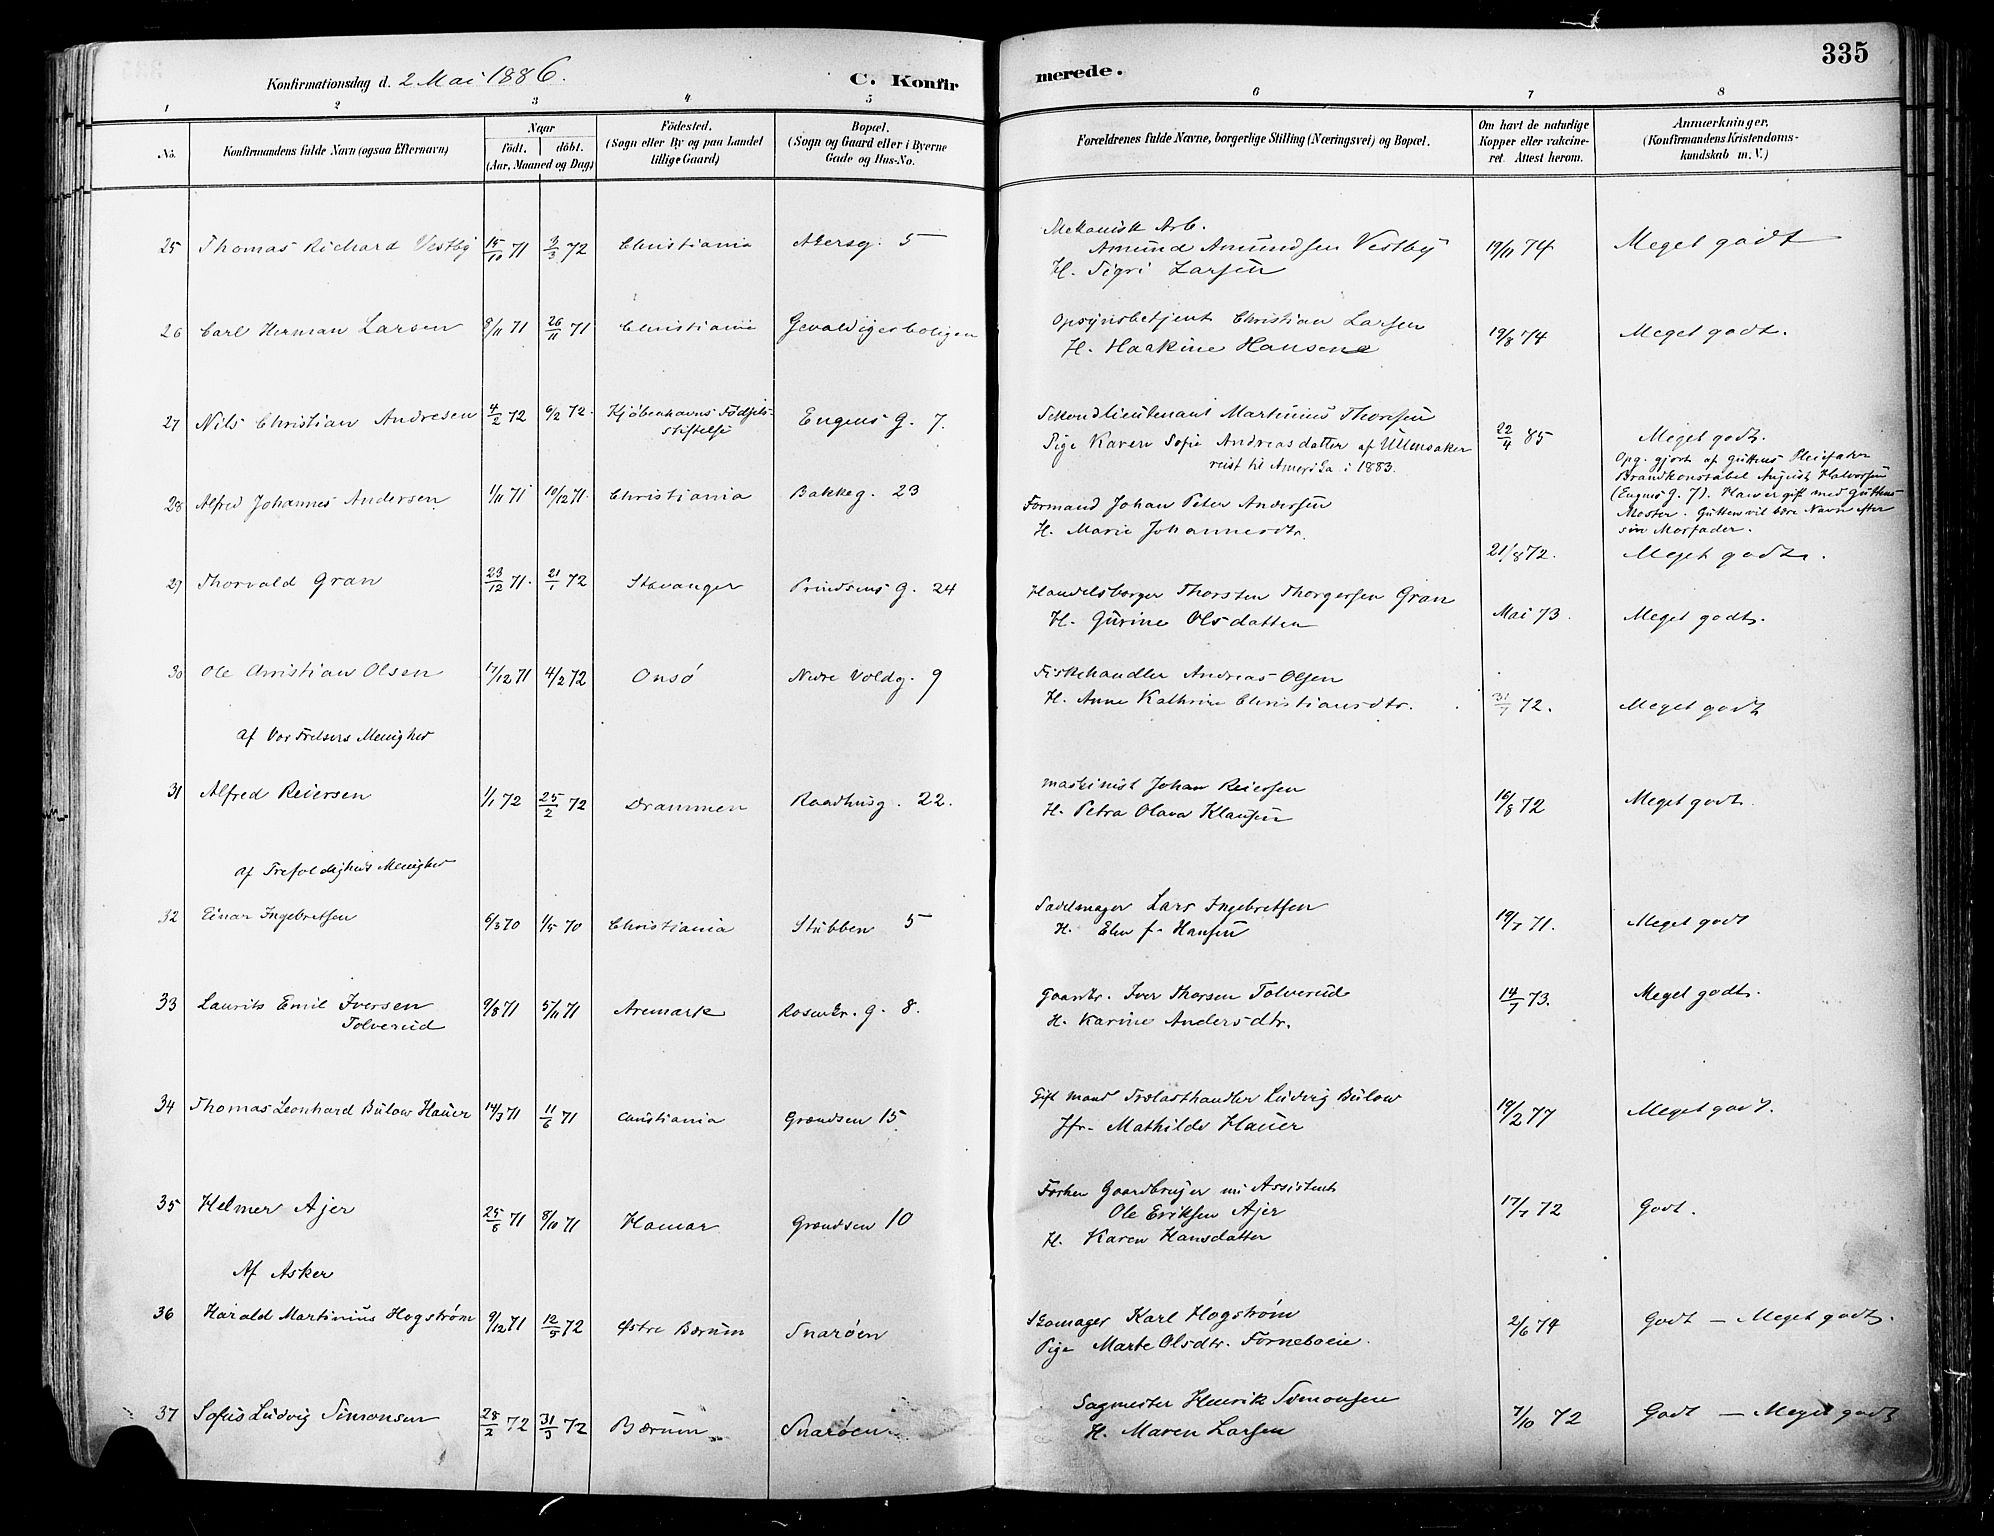 335
Konfirmationsdag d. 2 Mai 1886.
C. Konfirmerede.
1 2 3 4 5 6 7 8
No.
Konfirmandens fulde Navn (ogsaa Efternavn)
Naar
födt. döbt.
(Aar, Maaned og Dag)
Födested.
(Sogn eller By og paa Landet
tillige Gaard)
Bopæl.
(Sogn og Gaard eller i Byerne
Gade og Hus-No.
Forældrenes fulde Navne, borgerlige Stilling (Næringsvei) og Bopæl.
Om havt de naturlige
Kopper eller vakcine-
ret Attest herom.
Anmærkninger.
(Konfirmandens Kristendoms-
kundskab m. V.)
25 Thomas Richard Vestby 15/10 71 3/3 72 Christiania Akersg. 5
Mekanisk Arb.
Amund Amundsen Vestby
H. Sigri Larsen
19/11 74 Meget godt
26 Carl Herman Larsen 8/11 71 26/11 71 Christiania Gevaldigerboligen
Opsynsbetjent Christian Larsen
H. Haakine Hansen
19/8 74 Meget godt.
27 Nils Christian Andresen 4/2 72 6/2 72. Kjøbenhavns Fødsels-
stiftelse
Eugens G. 7.
Sekondlieutenant Martinius Thoresen
Pige Karen Sofie Andreasdatter af Ullensaker
reist til Amerika i 1883.
22/4 85 Meget godt.
Opg. gjort af Guttens Pleiefader
Brandkonstabel August Halvorsen
(Eugens G. 7). Han er gift med Guttens
Moster. Gutten vil bære Navn efter
sin Morfader.
28 Alfred Johannes Andersen 1/11 71 10/12 71. Christiania Bakkeg. 23
Formand Johan Peter Andersen
H. Marie Johannesdtr.
21/8 72. Meget godt.
29 Thorvald Gran 23/12 71. 21/1 72 Stavanger Prindsens G. 24
Handelsborger Thorsten Thorgersen Gran
H. Gurine Olsdatter
Mai 73. Meget godt.
30 Ole Christian Olsen 17/12 71 4/2 72 Onsø Nedre Voldg. 9
Fiskehandler Andreas Olsen
H. Anne Kathrine Christiansdtr.
31/7 72. Meget godt
af Vor Frelsers Menighed
31 Alfred Reiersen 1/1 72 25/2 72 Drammen Raadhusg. 22.
Maskinist Johan Reiersen
H. Petra Olava Klausen
16/8 72 Meget godt.
af Trefoldigheds Menighed
32 Einar Ingebretsen 6/3 70 1/5 70 Christiania Stubben 5
Sadelmager Lars Ingebretsen
H. Elen f. Hansen
19/7 71. Meget godt
33 Laurits Emil Iversen
Tolverud
9/8 71 5/11 71 Aremark Rosenkr. G. 8.
Gaardbr. Iver Thorsen Tolverud
H. Karine Andersdtr.
14/7 73. Meget godt.
34 Thomas Leonhard Bülow Hauer 14/3 71 11/6 71 Christiania Grændsen 15
Gift Mand Trælasthandler Ludvig Bülow
Jfr. Mathilde Hauer
19/2 77 Meget godt.
35 Helmer Ajer 25/6 71 8/10 71 Hamar Grændsen 10
Forhen Gaardbruger nu Assistent
Ole Eriksen Ajer
H. Karen Hansdatter
17/7 72 Godt.
Af Asker
36 Harald Martinius Hogstrøm 9/12 71 12/5 72 Østre Bærum Snarøen
Skomager Karl Hogstrøm
Pige Marte Olsdtr. Forneboeie.
2/6 74 Godt — Meget godt.
37 Sofus Ludvig Simonsen 28/2 72 31/3 72 Bærum Snarøen
Sagmester Henrik Simonsen
H. Maren Larsen
7/10 72 Godt — Meget godt